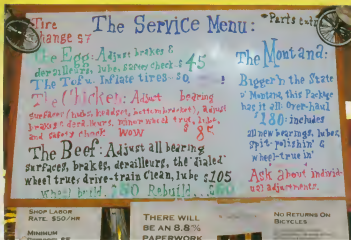 Tire
Change $7
The Service Menu:
*Parts extra
The Egg: Adjust brakes &
derailleurs, lube, safety check $45
The Tofu: Inflate tires - $0
The Chicken: Adjust bearing
surfaces (hubs, headset, bottom bracket), Adjust
brakes & derailleurs, minor wheel true, lube,
and safety check WOW $85
The Beef: Adjust all bearing
surfaces, brakes, derailleurs, the 'dialed'
wheel true, drive-train clean, lube $105
Wheel build $80 Rebuild $60
The Montand:
Bigger'n the State
o' Montana, this Package
has it all: Over-haul
$180: includes
all new bearings, lubes,
spit-polishin' &
wheel-true in'
Ask about individ-
ual adjustments.
SHOP LABOR
RATE: $50/HR
MINIMUM
THERE WILL
BE AN 8.8%
PAPERWORK
NO RETURNS ON
BICYCLES